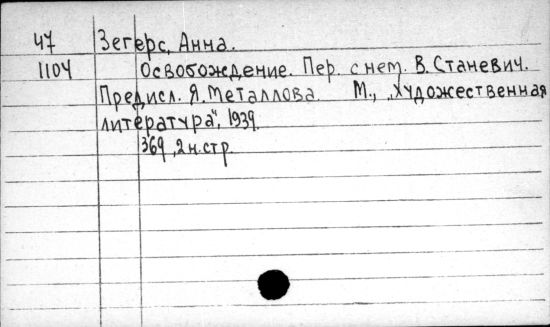 47 Зегерс, Анна.
1104 Освобождение. Пер. с нем. В. Станевич.
Предисл. Я. Металлова. М., „Художественная
литература", 1939.
369, 2 н. стр.